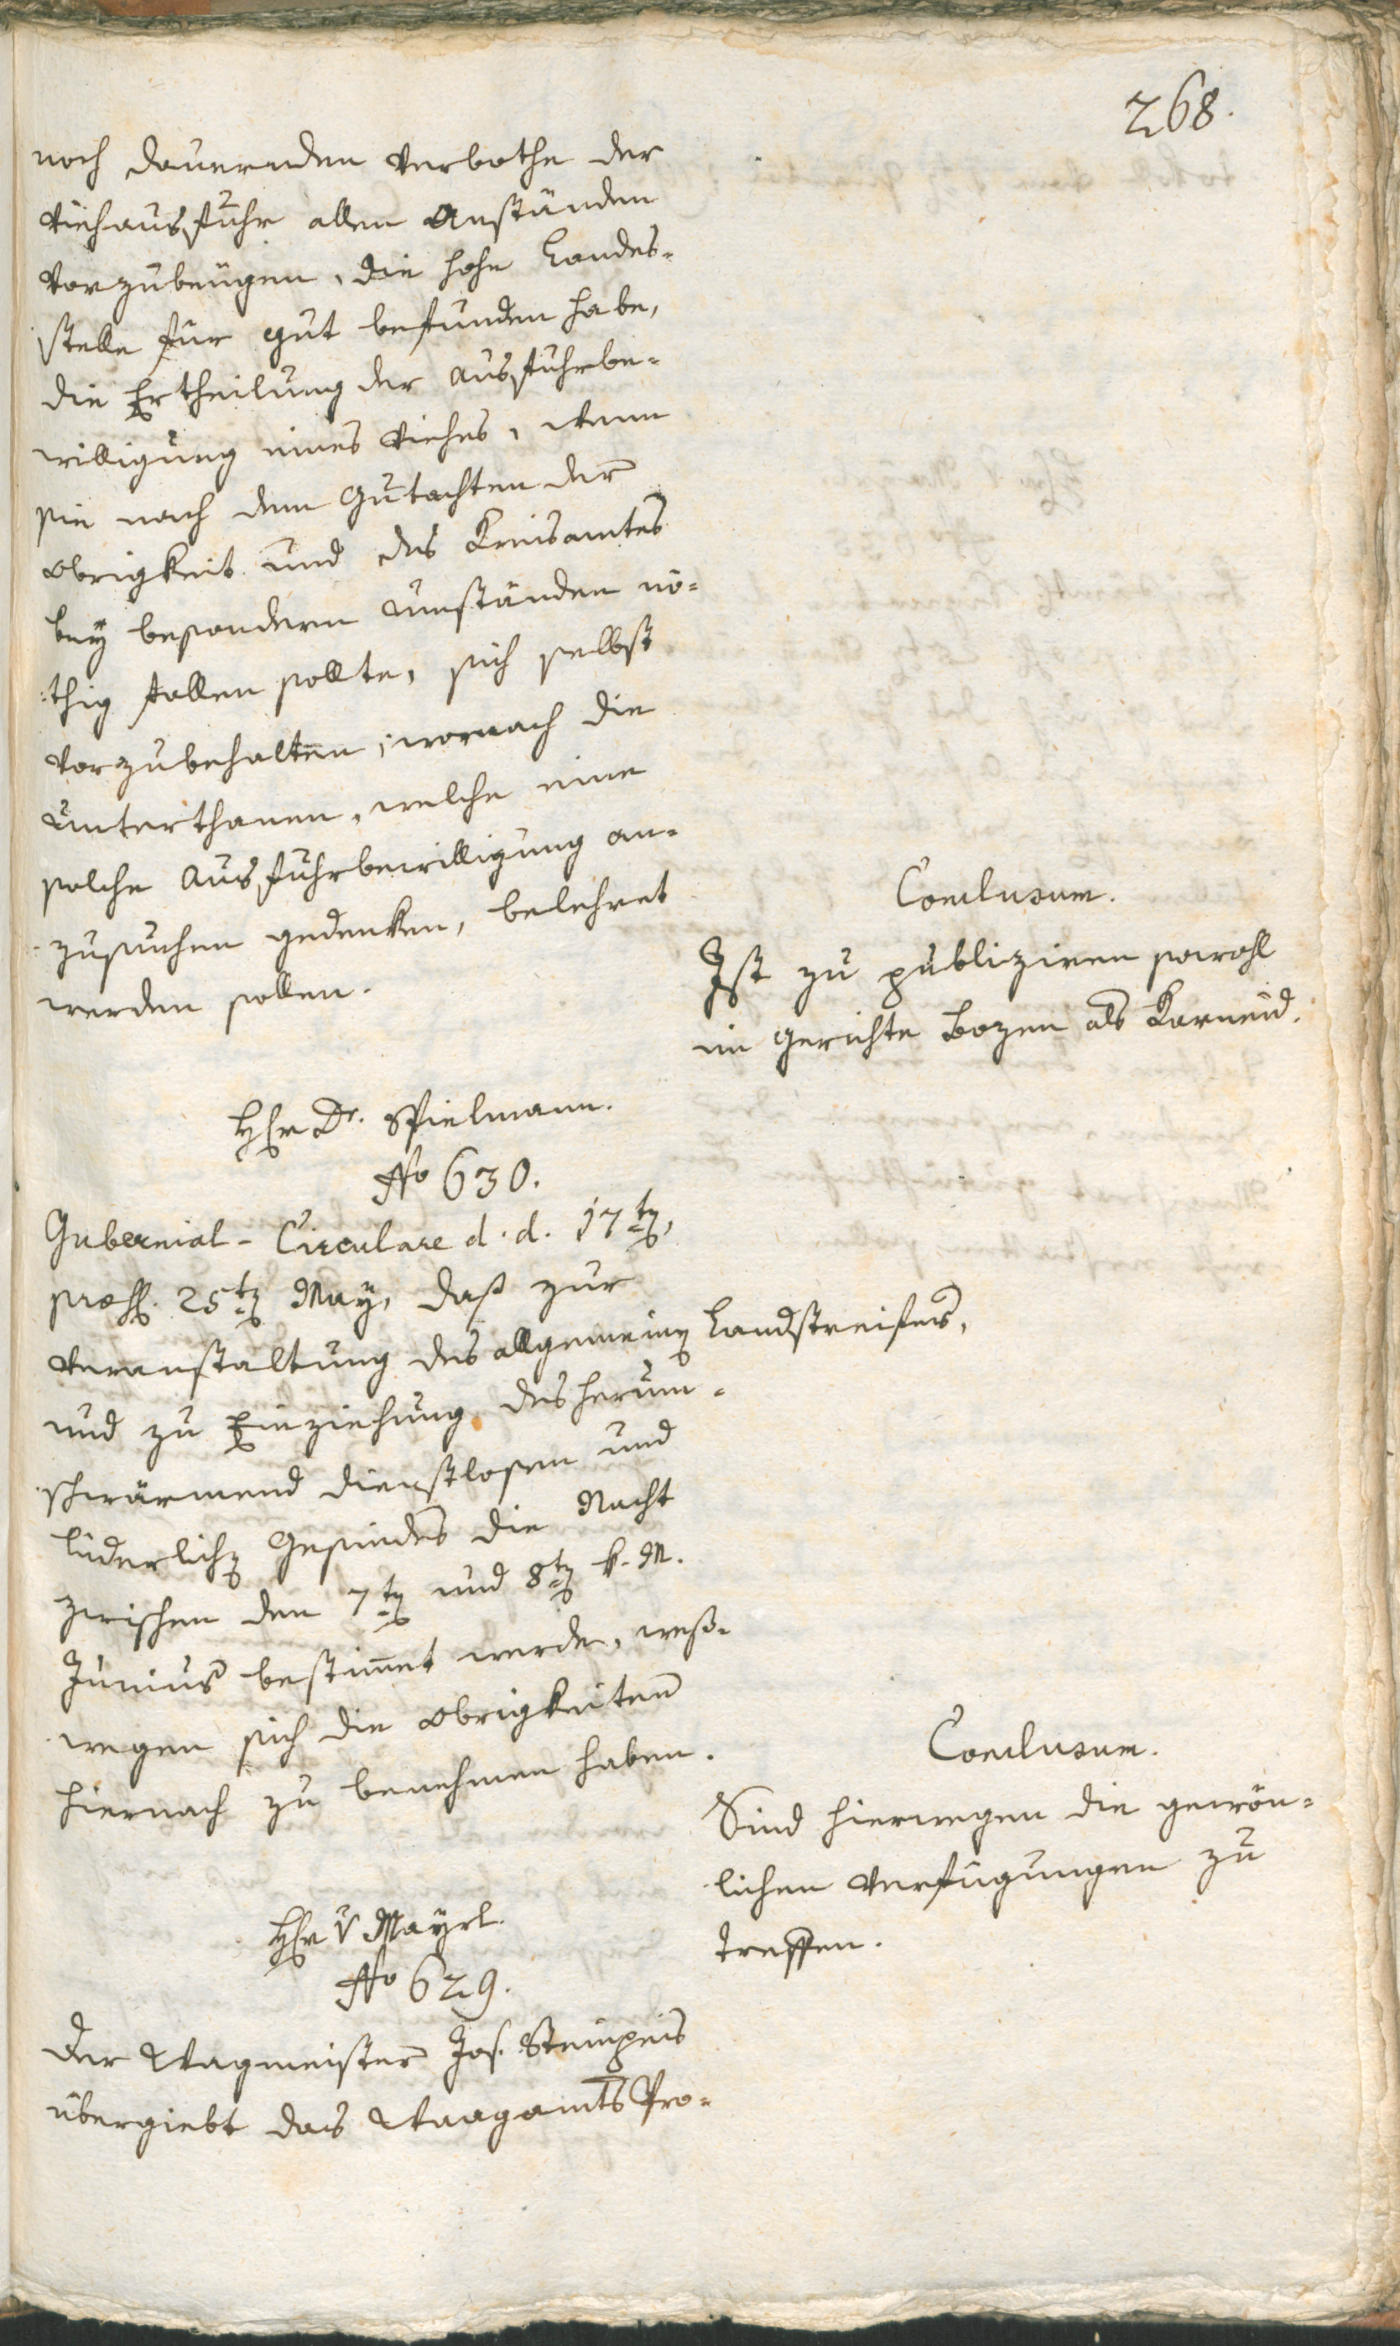 268.
noch dauernden Verbothe der
Viehausfuhr allen Anständen
vorzubeugen, die hohe Landes-
stelle für gut befunden habe,
die Ertheilung der Ausfuhrbe-
willigung eines Viehes, wenn
sie nach dem Gutachten der
Obrigkeit und des Kreisamtes
bey besondern Umständen nö-
thig fallen sollte, sich selbst
vorzubehalten; wornach die
Unterthanen, welche eine
solche Ausfuhrbewilligung an-
zusuchen gedenken, belehret
werden sollen.
Conclusum.
Ist zu publiziren sowohl
im Gerichte Bozen als Karneid.
Hr Dr. Spielmann.
No 630.
Gubernial-Circulare d. d. 17ten,
praes. 25ten May, daß zur
Veranstaltung des allgemeinen Landstreifens,
und zu Einziehung des herum-
schwärmend dienstlosen und
liederlichen Gesindes die Nacht
zwischen den 7ten und 8ten k. M.
Junius bestimmet werde, weß-
wegen sich die Obrigkeiten
hiernach zu benehmen haben.
Conclusum.
Sind hierwegen die gewön-
lichen Verfügungen zu
treffen.
Hr v Mayrl.
No 629.
Der Wagmeister Jos. Steinpeis
übergiebt das Waagamts Pro-